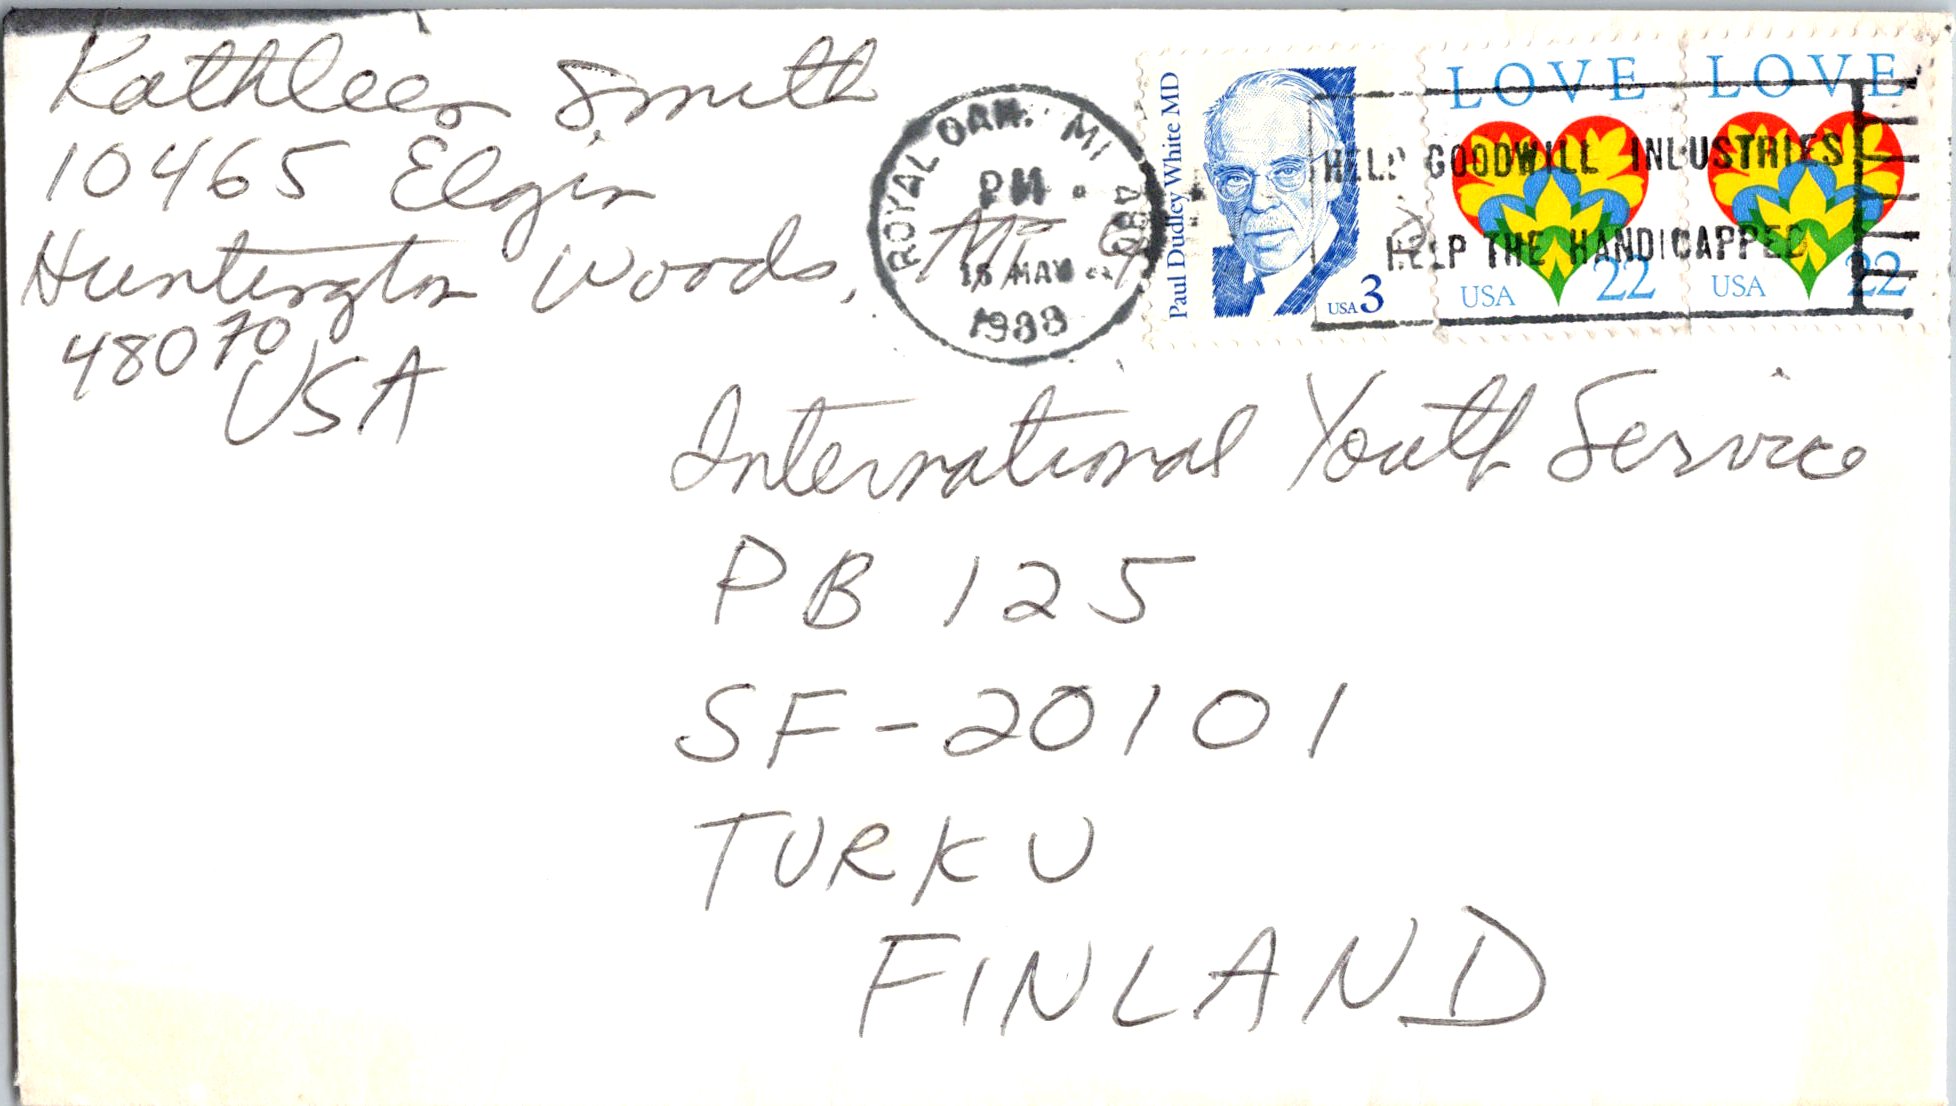 Kathleen Smith
10465 Elgin
Huntington Woods, MI
48070
USA
ROYAL OAK, MI 480
PM
1988
Paul Dudley White MD
USA 3
LOVE
USA 22
LOVE
USA 22
HELP GOODWILL INDUSTRIES
HELP THE HANDICAPPED
International Youth Service
PB 125
SF-20101
TURKU
FINLAND